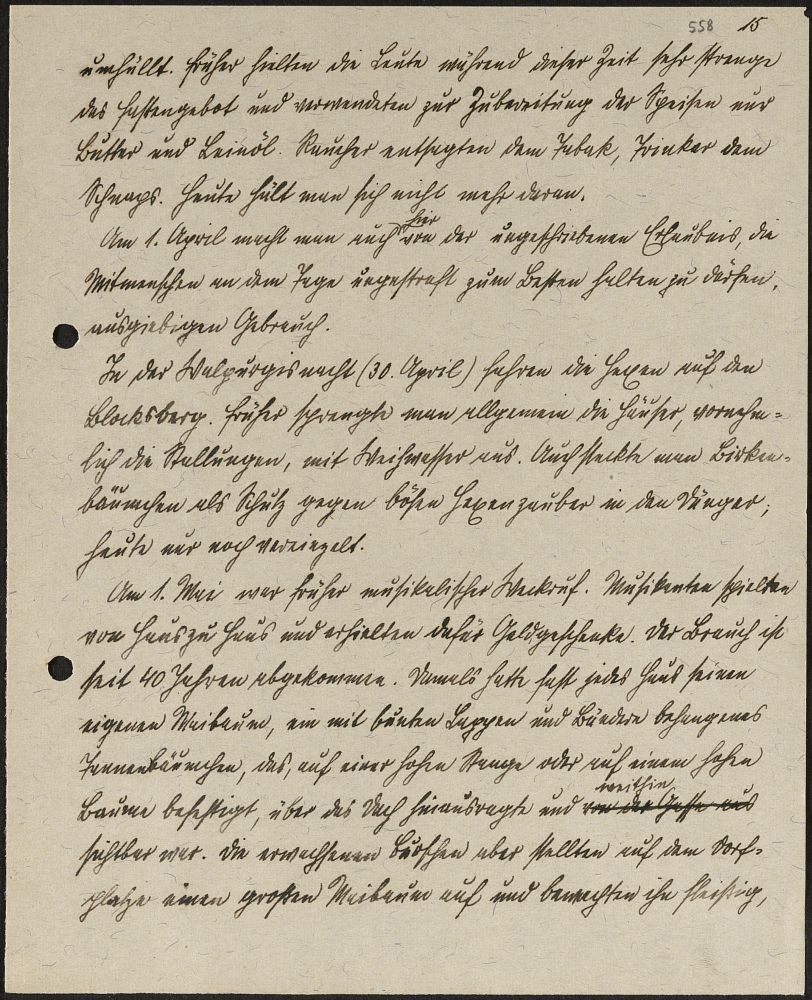 558 15
umhüllt. Früher hielten die Leute während dieser Zeit sehr strenge
das Fastengebot und verwendeten zur Zubereitung der Speisen nur
Butter und Leinöl. Raucher entsagten dem Tabak, Trinker dem
Schnaps. Heute hält man sich nicht mehr daran.
Am 1. April macht man auch hier von der ungeschriebenen Erlaubnis, die
Mitmenschen an dem Tage ungestraft zum Besten halten zu dürfen,
ausgiebigen Gebrauch.
In der Walpurgisnacht (30. April) fahren die Hexen auf den
Blocksberg. Früher sprengte man allgemein die Häuser, vornehm=
lich die Stallungen, mit Weihwasser aus. Auch steckte man Birken=
bäumchen als Schutz gegen bösen Hexenzauber in den Dünger;
heute nur noch vereinzelt.
Am 1. Mai war früher musikalischer Weckruf. Musikanten spielten
von Haus zu Haus und erhielten dafür Geldgeschenke. Der Brauch ist
seit 40 Jahren abgekommen. Damals hatte fast jedes Haus seinen
eigenen Maibaum, ein mit bunten Lappen und Bändern behangenes
Tannenbäumchen, das, auf einer hohen Stange oder auf einem hohen
Baume befestigt, über das Dach hinausragte und weithin von der Gasse aus
sichtbar war. Die erwachsenen Burschen aber stellten auf dem Dorf=
platze einen großen Maibaum auf und bewachten ihn fleißig,